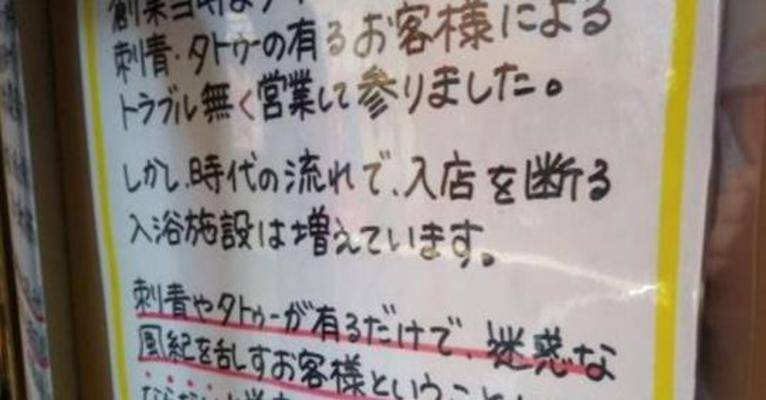 創業当時より
刺青・タトゥーの有るお客様による
トラブル無く営業して参りました。
しかし、時代の流れで、入店を断る
入浴施設は増えています。
刺青やタトゥーが有るだけで、迷惑な
風紀を乱すお客様ということ